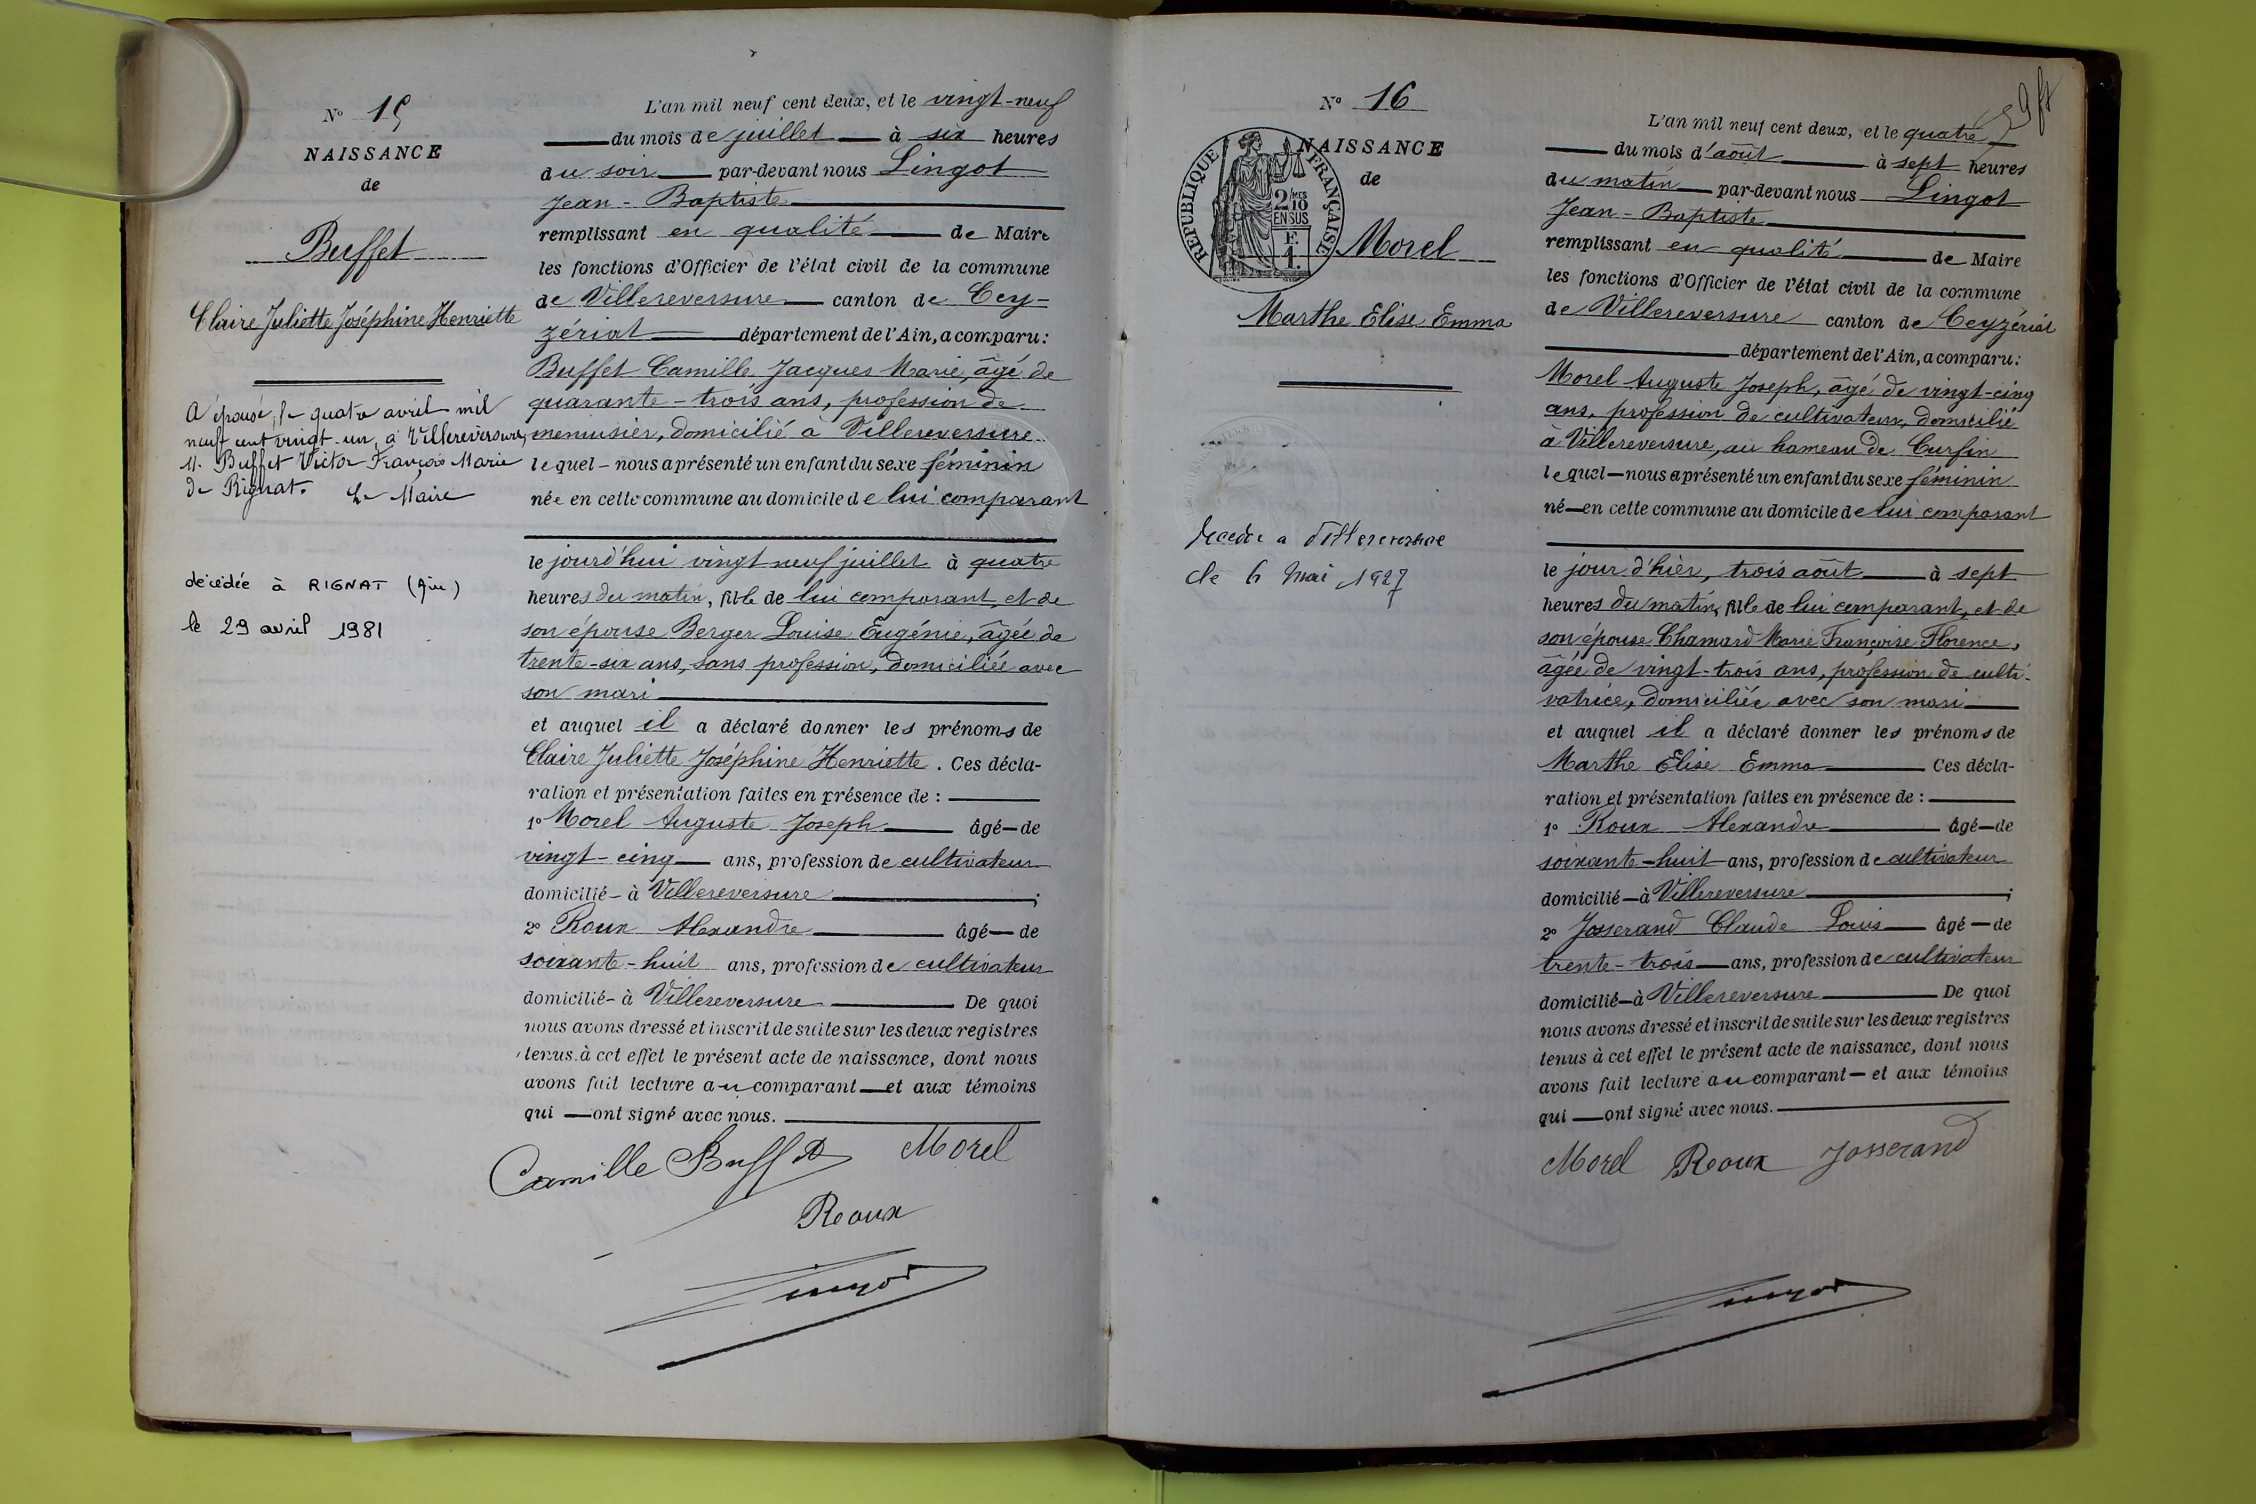 N° 15
NAISSANCE
de
Buffet
Claire Juliette Joséphine Henriette
A épousé, le quatre avril mil
neuf cent vingt-un, à Villereversure,
M. Buffet Victor François Marie
de Rignat. Le Maire
décédée à RIGNAT (Ain)
le 29 avril 1981
L'an mil neuf cent deux, et le vingt-neuf
du mois de juillet à six heures
du soir par-devant nous Lingot
Jean-Baptiste
remplissant en qualité de Maire
les fonctions d'Officier de l'état civil de la commune
de Villereversure canton de Cey-
zériat département de l'Ain, a comparu:
Buffet Camille Jacques Marie, âgé de
quarante-trois ans, profession de
menuisier, domicilié à Villereversure
lequel nous a présenté un enfant du sexe féminin
née en cette commune au domicile de lui comparant
le jourd'hui vingt neuf juillet à quatre
heures du matin, fille de lui comparant, et de
son épouse Berger Louise Eugénie, âgée de
trente-six ans, sans profession, domiciliée avec
son mari
et auquel il a déclaré donner les prénoms de
Claire Juliette Joséphine Henriette. Ces décla-
ration et présentation faites en présence de :
1° Morel Auguste Joseph âgé de
vingt-cinq ans, profession de cultivateur
domicilié à Villereversure ;
2° Roux Alexandre âgé de
soixante-huit ans, profession de cultivateur
domicilié à Villereversure De quoi
nous avons dressé et inscrit de suite sur les deux registres
tenus à cet effet le présent acte de naissance, dont nous
avons fait lecture au comparant et aux témoins
qui ont signé avec nous.
Camille Buffet Morel
Roux
Lingot
N° 16
NAISSANCE
de
REPUBLIQUE FRANÇAISE
2/10 MES
EN SUS
F.
1.
Morel
Marthe Elise Emma
Décédée à Villereversure
le 6 mai 1927
L'an mil neuf cent deux, et le quatre
du mois d'août à sept heures
du matin par-devant nous Lingot
Jean-Baptiste
remplissant en qualité de Maire
les fonctions d'Officier de l'état civil de la commune
de Villereversure canton de Ceyzériat
département de l'Ain, a comparu:
Morel Auguste Joseph, âgé de vingt-cinq
ans, profession de cultivateur, domicilié
à Villereversure, au hameau de Curfin
lequel nous a présenté un enfant du sexe féminin
né en cette commune au domicile de lui comparant
le jour d'hier, trois août à sept
heures du matin, fille de lui comparant, et de
son épouse Chamard Marie Françoise Florence,
âgée de vingt-trois ans, profession de culti-
vatrice, domiciliée avec son mari
et auquel il a déclaré donner les prénoms de
Marthe Elise Emma Ces décla-
ration et présentation faites en présence de :
1° Roux Alexandre âgé de
soixante-huit ans, profession de cultivateur
domicilié à Villereversure ;
2° Josserand Claude Louis âgé de
trente-trois ans, profession de cultivateur
domicilié à Villereversure De quoi
nous avons dressé et inscrit de suite sur les deux registres
tenus à cet effet le présent acte de naissance, dont nous
avons fait lecture au comparant et aux témoins
qui ont signé avec nous.
Morel Roux Josserand
Lingot